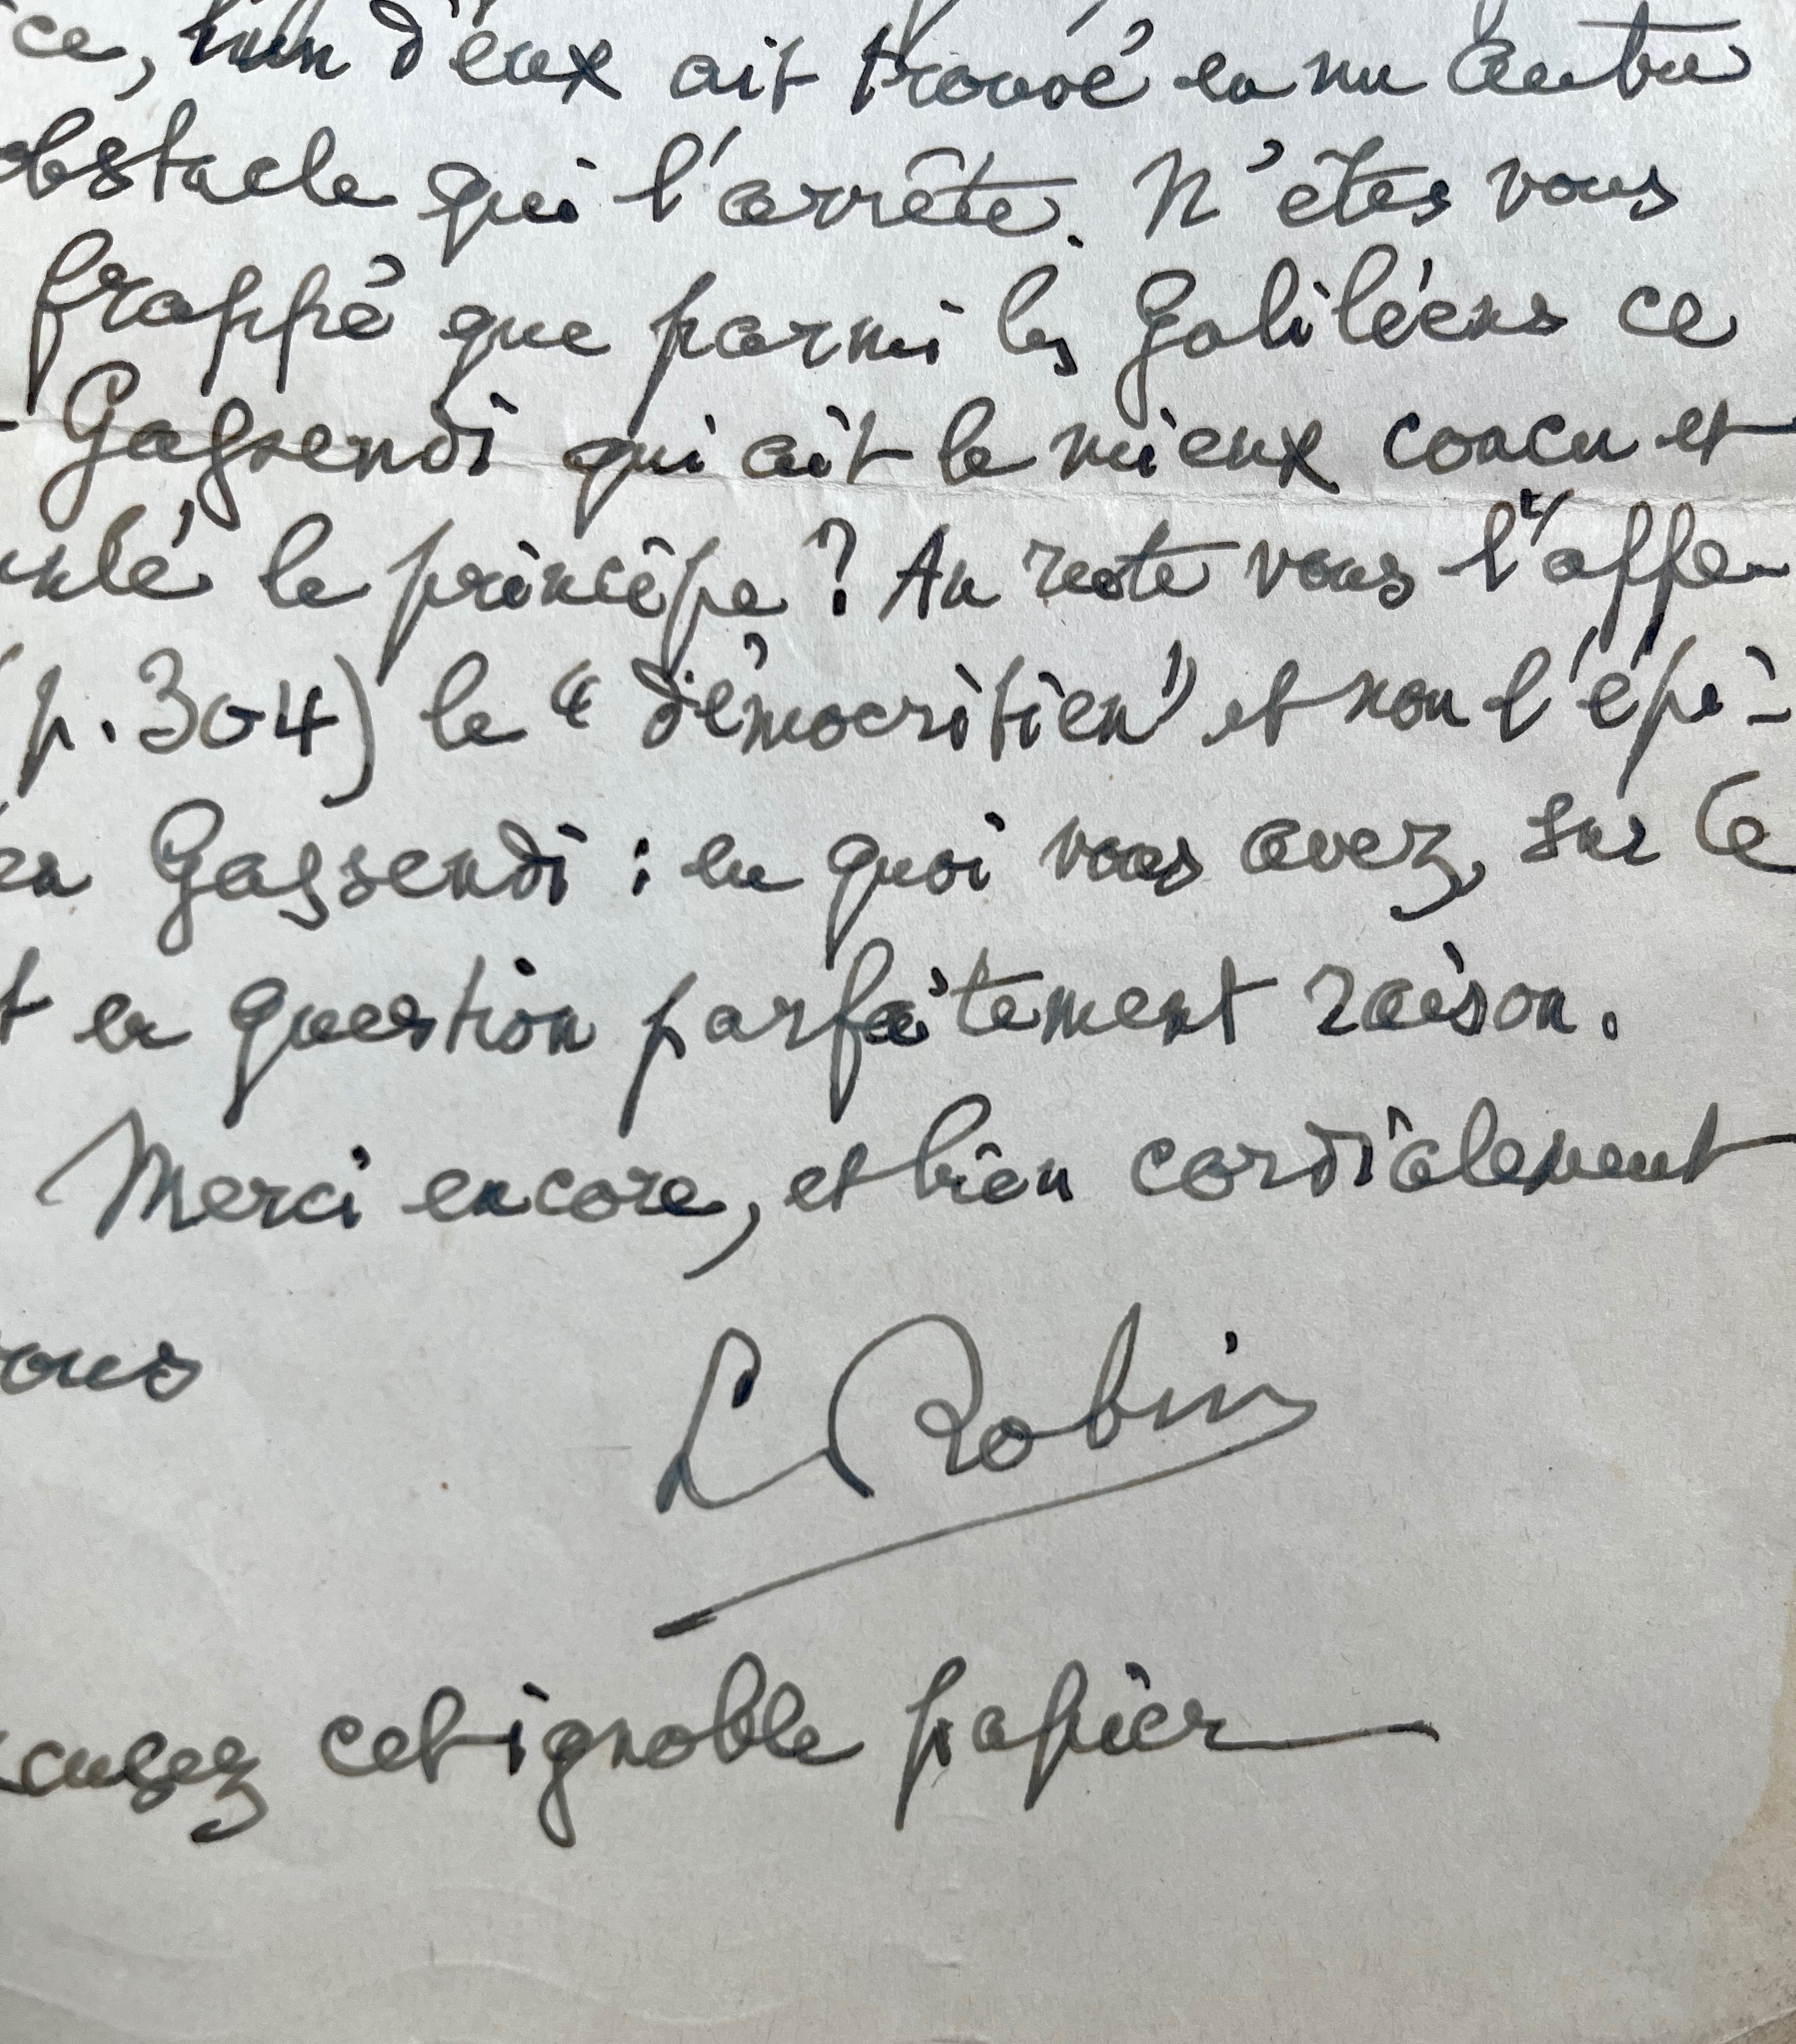 ce, l'un d'eux ait trouvé en un autre
obstacle qui l'arrête. N'êtes vous
frappé que parmi les Galiléens ce
Gassendi qui ait le mieux concu et
le principe ? Au reste vous l'appe-
(p. 304) le "démocritien" et non l'épi-
en Gassendi : en quoi vous avez, sur le
t en question parfaitement raison.
Merci encore, et bien cordialement
ous
L Robin
cusez cet ignoble papier